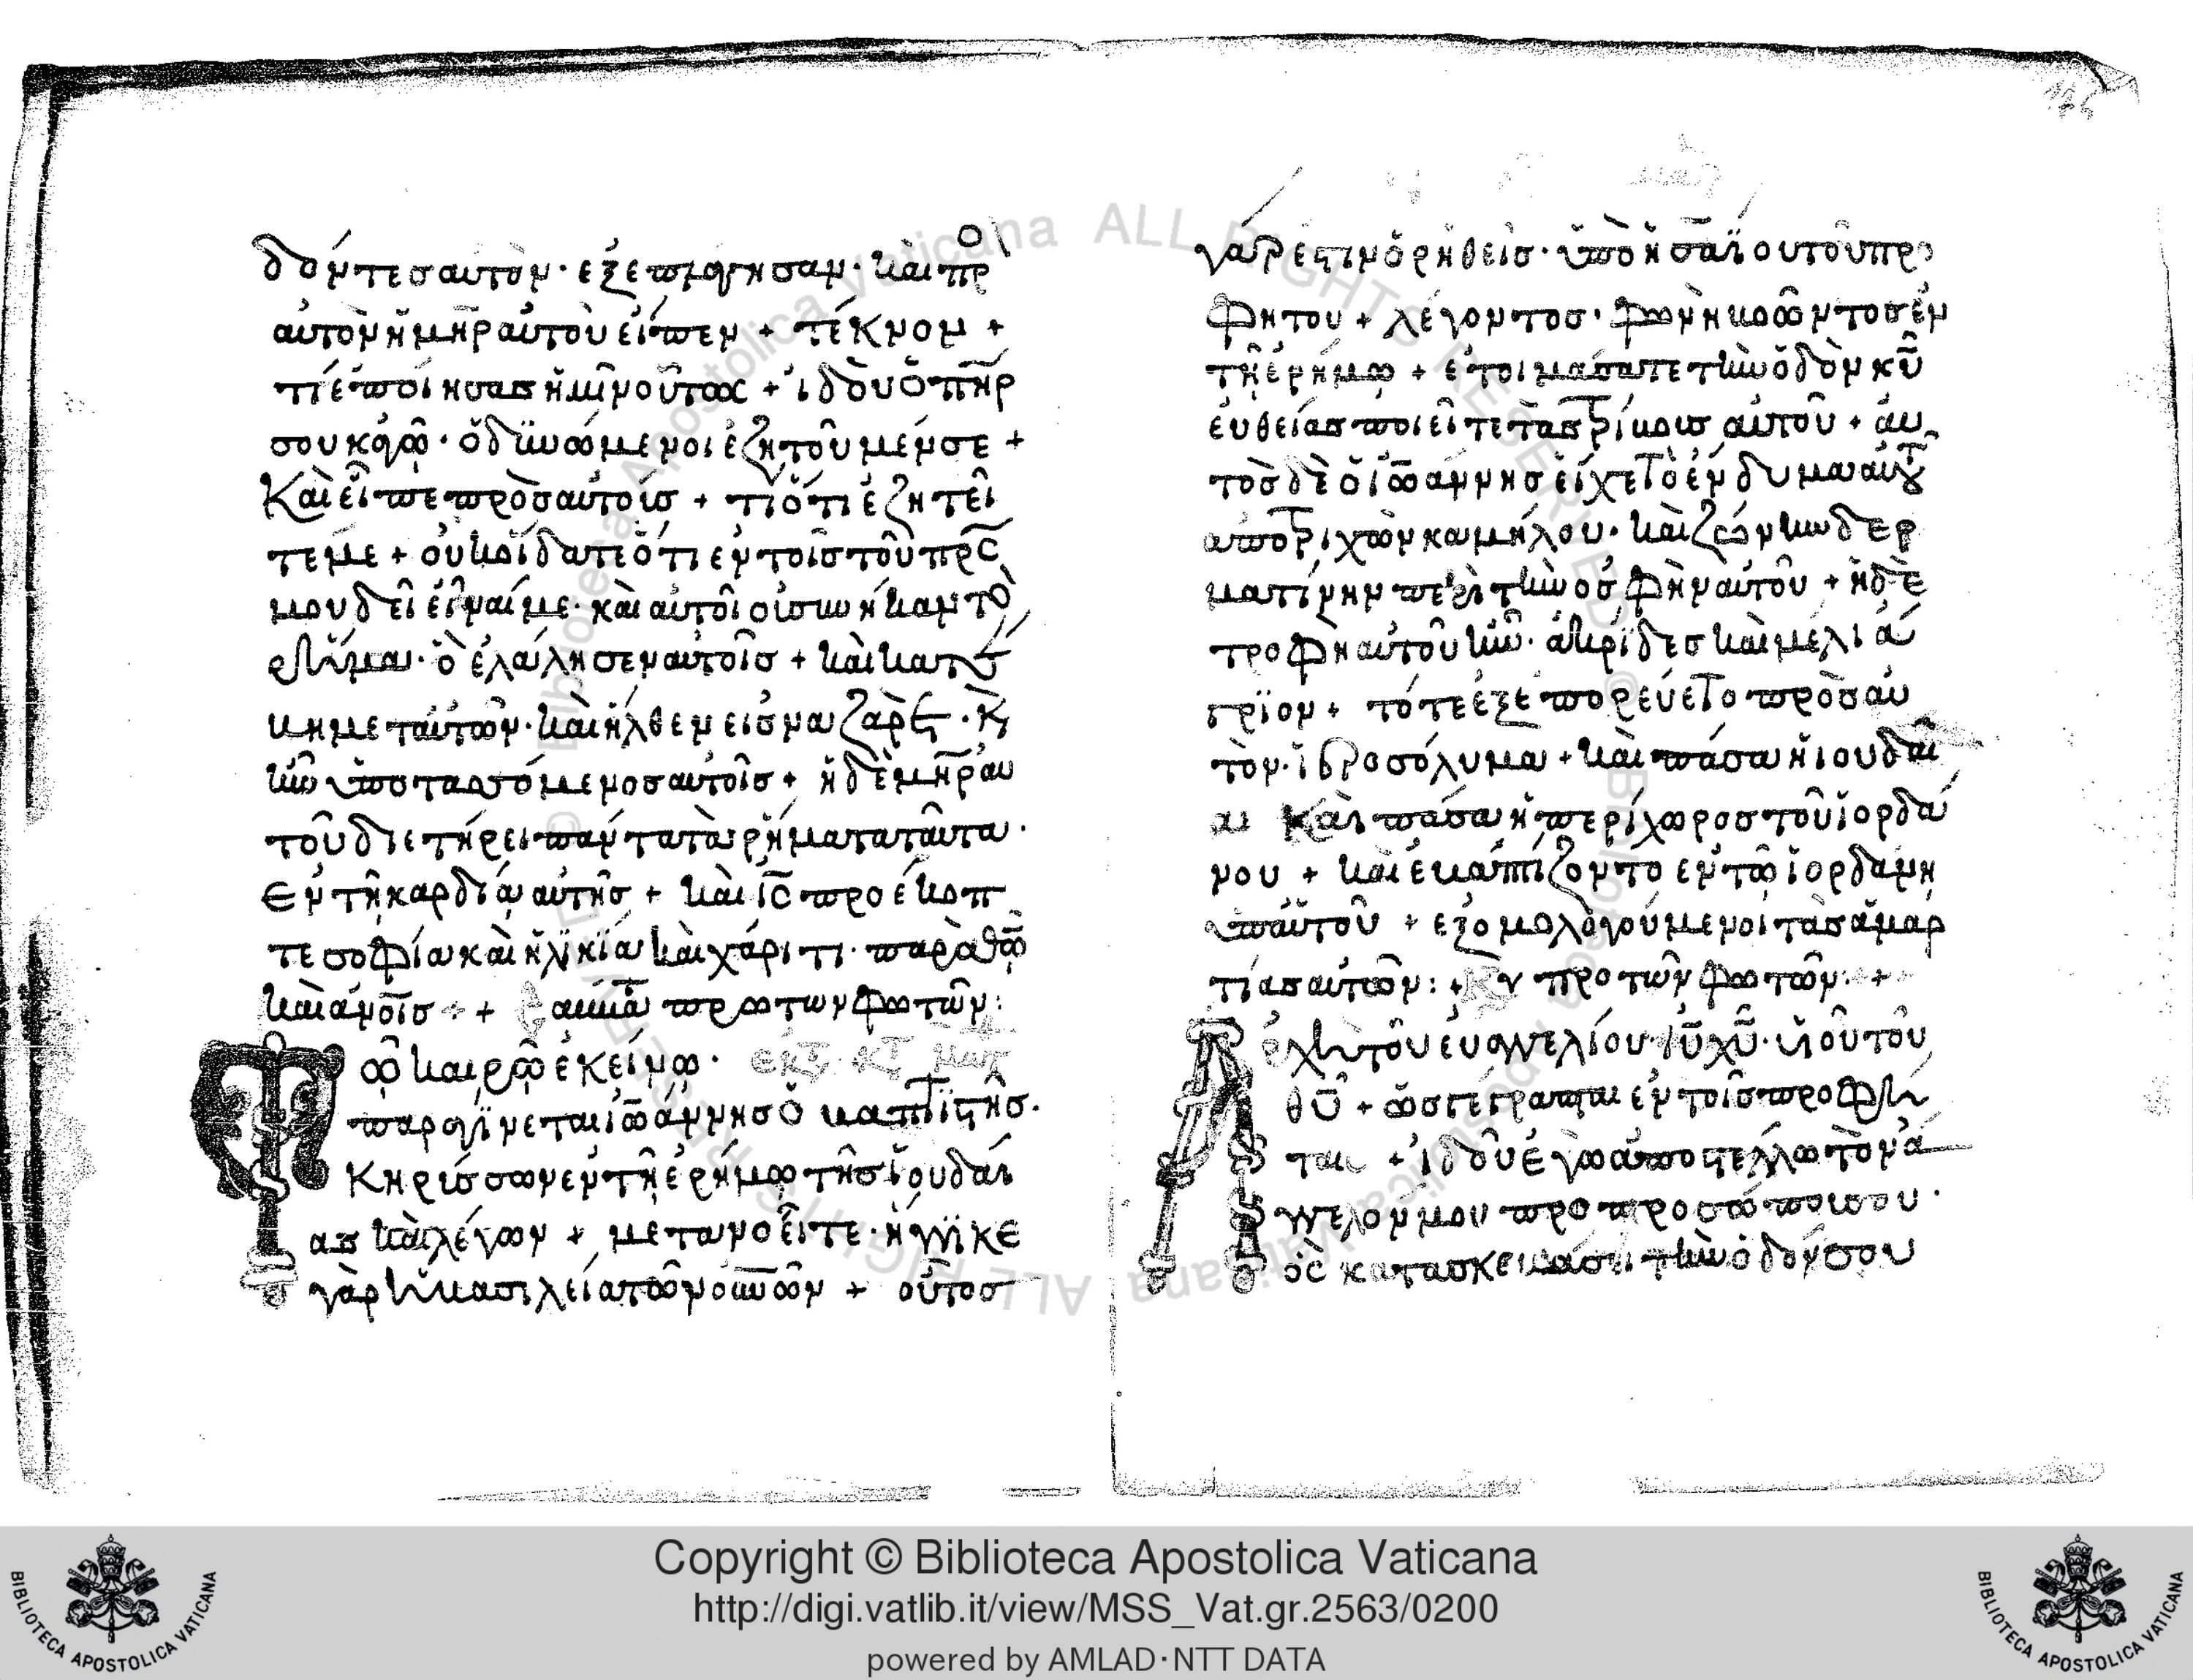 δόντεσ αυτὸν· εξεπλάγησαν· καὶ πρ
αὐτὸν ἡ μηρ αὐτοῦ εἶπεν + τέκνον +
τί ἐποίησασ ἡμῖν οὕτωσ + ἰδοὺ ὁ πηρ
σου κἀγὼ· ὀδϋνώμενοι ἐζητοῦμέν σε +
Καὶ εἶπε πρὸσ αὐτοὺσ + τί ὅτι ἐζητεῖ
τέ με + οὐκ οἴδατε ὅτι εν τοῖσ τοῦ πρσ
μου δεῖ εἶναί με· καὶ αυτοὶ οὐ συνήκαν τὸ
ρῆμα· ὃ ἐλάλησεν αυτοῖσ + καὶ κατέ
βη μετ αὐτῶν· καὶ ἦλθεν εισ ναζαρὲτ· κ
ἦν ὑποτασσόμενοσ αυτοῖσ + ἡ δὲ μηρ αυ
τοῦ διετήρει πάντα τὰ ρήματα ταῦτα·
Εν τῆ καρδία αὐτῆσ + καὶ ισ προέκοπ
τε σοφία καὶ ἡλϊκία καὶ χάριτι· παρὰ θω
καὶ ανοισ + +
πρω των φώτων:
Τῶ καιρῶ ἐκείνω·
παραγΐνεται ἰωάννησ ὁ βαπτϊστὴσ·
Κηρύσσων εν τῆ ἐρήμω τῆσ ϊουδαί
ασ καὶ λέγων + μετανοεῖτε· ἤγγϊκε
γὰρ ἡ βασιλεία τῶν ουνων + οὗτοσ
γάρ ἐστιν ὁ ρηθεὶσ· ὑπὸ ησαϊου τοῦ προ
Φήτου + λέγοντοσ· φωνὴ βοῶντοσ ἐν
τῆ ἐρήμω + ἑτοιμάσατε τὴν ὁδὸν κυ
εὐθείασ ποιεῖτε τὰσ τρίβουσ αὐτοῦ + αυ
τὸσ δὲ ὁ ἰωάννησ εἶχε τὸ ἔνδυμα αὐτοῦ
απὸ τριχῶν καμήλου· καὶ ζώνην δερ
ματίνην περὶ τὴν οσφὴν αὐτοῦ + ἡ δὲ
τροφὴ αὐτοῦ ἦν· ἀκρίδεσ καὶ μέλι ἄ
γρϊον + τότε ἐξεπορεύετο πρὸσ αὐ
τὸν· ϊεροσόλυμα + καὶ πάσα ἡ ιουδαῖ
αι Κὰι πάσα ἡ περίχωροσ τοῦ ϊορδά
νου + καὶ ἐβαπτίζοντο εν τῶ ἰορδάνη
υπ αὐτοῦ + εξομολογούμενοι τὰσ ἁμαρ
τίασ αὐτῶν: + Κυ προ τῶν φωτῶν: +
Αρχὴ τοῦ ευαγγελίου· ιυ χυ· υιοῦ τοῦ
θυ + ὡσ γέγραπται ἐν τοῖσ προφή
ταισ + ἰδοὺ Ἐγὼ ἀποστέλλω τὸν ά
γγελόν μου προ προσώπου σου·
ὃσ κατασκευάσει τὴν ὁδόν σου
Copyright © Biblioteca Apostolica Vaticana
http://digi.vatlib.it/view/MSS_Vat.gr.2563/0200
powered by AMLAD·NTT DATA
BIBLIOTECA APOSTOLICA VATICANA
BIBLIOTECA APOSTOLICA VATICANA